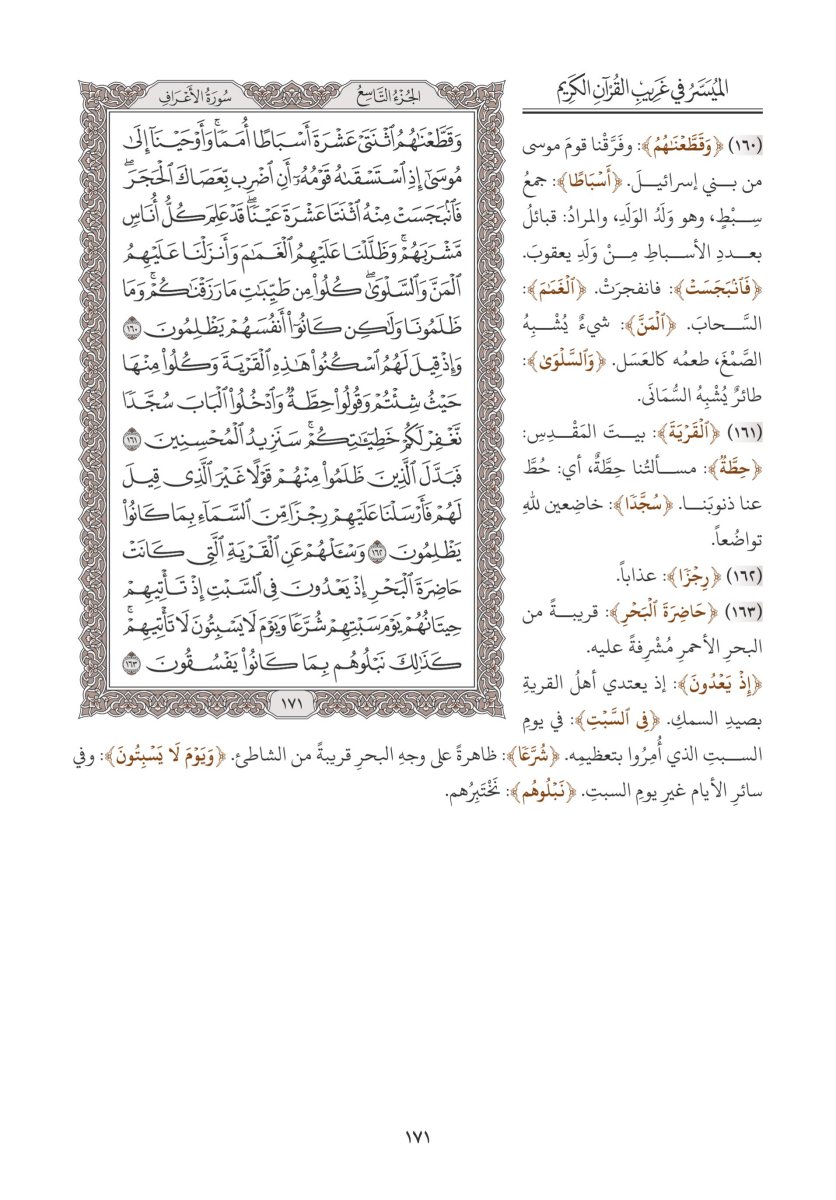 الميُسَّرُ في غَرِيبِ القُرْآنِ الكَرِيم
(١٦٠) ﴿وَقَطَّعْنَٰهُمُ﴾: وفَرَّقْنا قومَ موسى
من بــني إسرائيـلَ. ﴿أَسْبَاطًا﴾: جمعُ
سِــبْطٍ، وهو وَلَدُ الوَلَدِ، والمرادُ: قبائلُ
بعــددِ الأسـباطِ مِــنْ وَلَدِ يعقوبَ.
﴿فَٱنۢبَجَسَتْ﴾: فانفجرَتْ. ﴿ٱلْغَمَٰمَ﴾:
السَّــحابَ. ﴿ٱلْمَنَّ﴾: شيءٌ يُشْــبِهُ
الصَّمْغَ، طعمُه كالعَسَل. ﴿وَٱلسَّلْوَىٰ﴾:
طائرٌ يُشْبِهُ السُّمَانَى.
(١٦١) ﴿ٱلْقَرْيَةَ﴾: بيـتَ المَقْـدِسِ:
﴿حِطَّةٌ﴾: مســألتُنا حِطَّةٌ، أي: حُطَّ
عنا ذنوبَنــا. ﴿سُجَّدًا﴾: خاضِعين للهِ
تواضُعاً.
(١٦٢) ﴿رِجْزًا﴾: عذاباً.
(١٦٣) ﴿حَاضِرَةَ ٱلْبَحْرِ﴾: قريبــةً من
البحرِ الأحمرِ مُشْرِفةً عليه.
﴿إِذْ يَعْدُونَ﴾: إذ يعتدي أهلُ القريةِ
بصيدِ السمكِ. ﴿فِى ٱلسَّبْتِ﴾: في يومِ
الســبتِ الذي أُمِرُوا بتعظيمِه. ﴿شُرَّعًا﴾: ظاهرةً على وجهِ البحرِ قريبةً من الشاطئ. ﴿وَيَوْمَ لَا يَسْبِتُونَ﴾: وفي
سائرِ الأيام غيرِ يومِ السبتِ. ﴿نَبْلُوهُم﴾: نَخْتَبِرُهم.
الجُزْءُ التَّاسِعُ
سُورَةُ الأَعْرَافِ
وَقَطَّعْنَٰهُمُ ٱثْنَتَىْ عَشْرَةَ أَسْبَاطًا أُمَمًا ۚ وَأَوْحَيْنَآ إِلَىٰ
مُوسَىٰٓ إِذِ ٱسْتَسْقَىٰهُ قَوْمُهُۥٓ أَنِ ٱضْرِب بِّعَصَاكَ ٱلْحَجَرَ ۖ
فَٱنۢبَجَسَتْ مِنْهُ ٱثْنَتَا عَشْرَةَ عَيْنًا ۖ قَدْ عَلِمَ كُلُّ أُنَاسٍ
مَّشْرَبَهُمْ ۚ وَظَلَّلْنَا عَلَيْهِمُ ٱلْغَمَٰمَ وَأَنزَلْنَا عَلَيْهِمُ
ٱلْمَنَّ وَٱلسَّلْوَىٰ ۖ كُلُوا۟ مِن طَيِّبَٰتِ مَا رَزَقْنَٰكُمْ ۚ وَمَا
ظَلَمُونَا وَلَٰكِن كَانُوٓا۟ أَنفُسَهُمْ يَظْلِمُونَ ١٦٠
وَإِذْ قِيلَ لَهُمُ ٱسْكُنُوا۟ هَٰذِهِ ٱلْقَرْيَةَ وَكُلُوا۟ مِنْهَا
حَيْثُ شِئْتُمْ وَقُولُوا۟ حِطَّةٌ وَٱدْخُلُوا۟ ٱلْبَابَ سُجَّدًا
نَّغْفِرْ لَكُمْ خَطِيٓـَٰٔتِكُمْ ۚ سَنَزِيدُ ٱلْمُحْسِنِينَ ١٦١
فَبَدَّلَ ٱلَّذِينَ ظَلَمُوا۟ مِنْهُمْ قَوْلًا غَيْرَ ٱلَّذِى قِيلَ
لَهُمْ فَأَرْسَلْنَا عَلَيْهِمْ رِجْزًا مِّنَ ٱلسَّمَآءِ بِمَا كَانُوا۟
يَظْلِمُونَ ١٦٢ وَسْـَٔلْهُمْ عَنِ ٱلْقَرْيَةِ ٱلَّتِى كَانَتْ
حَاضِرَةَ ٱلْبَحْرِ إِذْ يَعْدُونَ فِى ٱلسَّبْتِ إِذْ تَأْتِيهِمْ
حِيتَانُهُمْ يَوْمَ سَبْتِهِمْ شُرَّعًا وَيَوْمَ لَا يَسْبِتُونَ ۙ لَا تَأْتِيهِمْ ۚ
كَذَٰلِكَ نَبْلُوهُم بِمَا كَانُوا۟ يَفْسُقُونَ ١٦٣
١٧١
١٧١